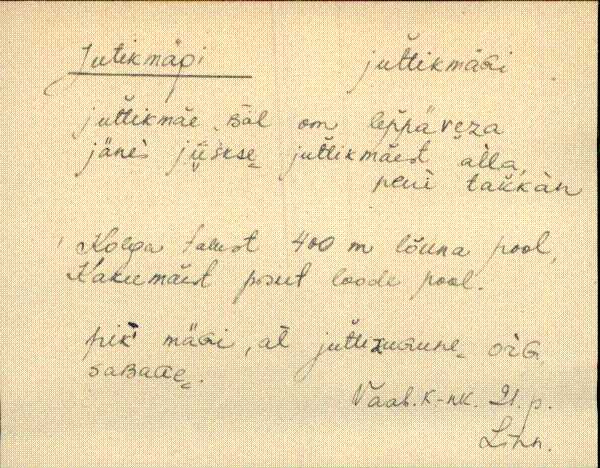 Jutikmägi juttikmäGi
juttikmäe Bäl om leppäveza
jänes jüskse juttikmäest alla,
peni takkan
Kolga talust 400 m lõuna pool,
Kakumäest pisut loode pool.
pik mäGi, al juttikugune org
saBatte.
Vaab. k.-nk. 21. p.
Linn.